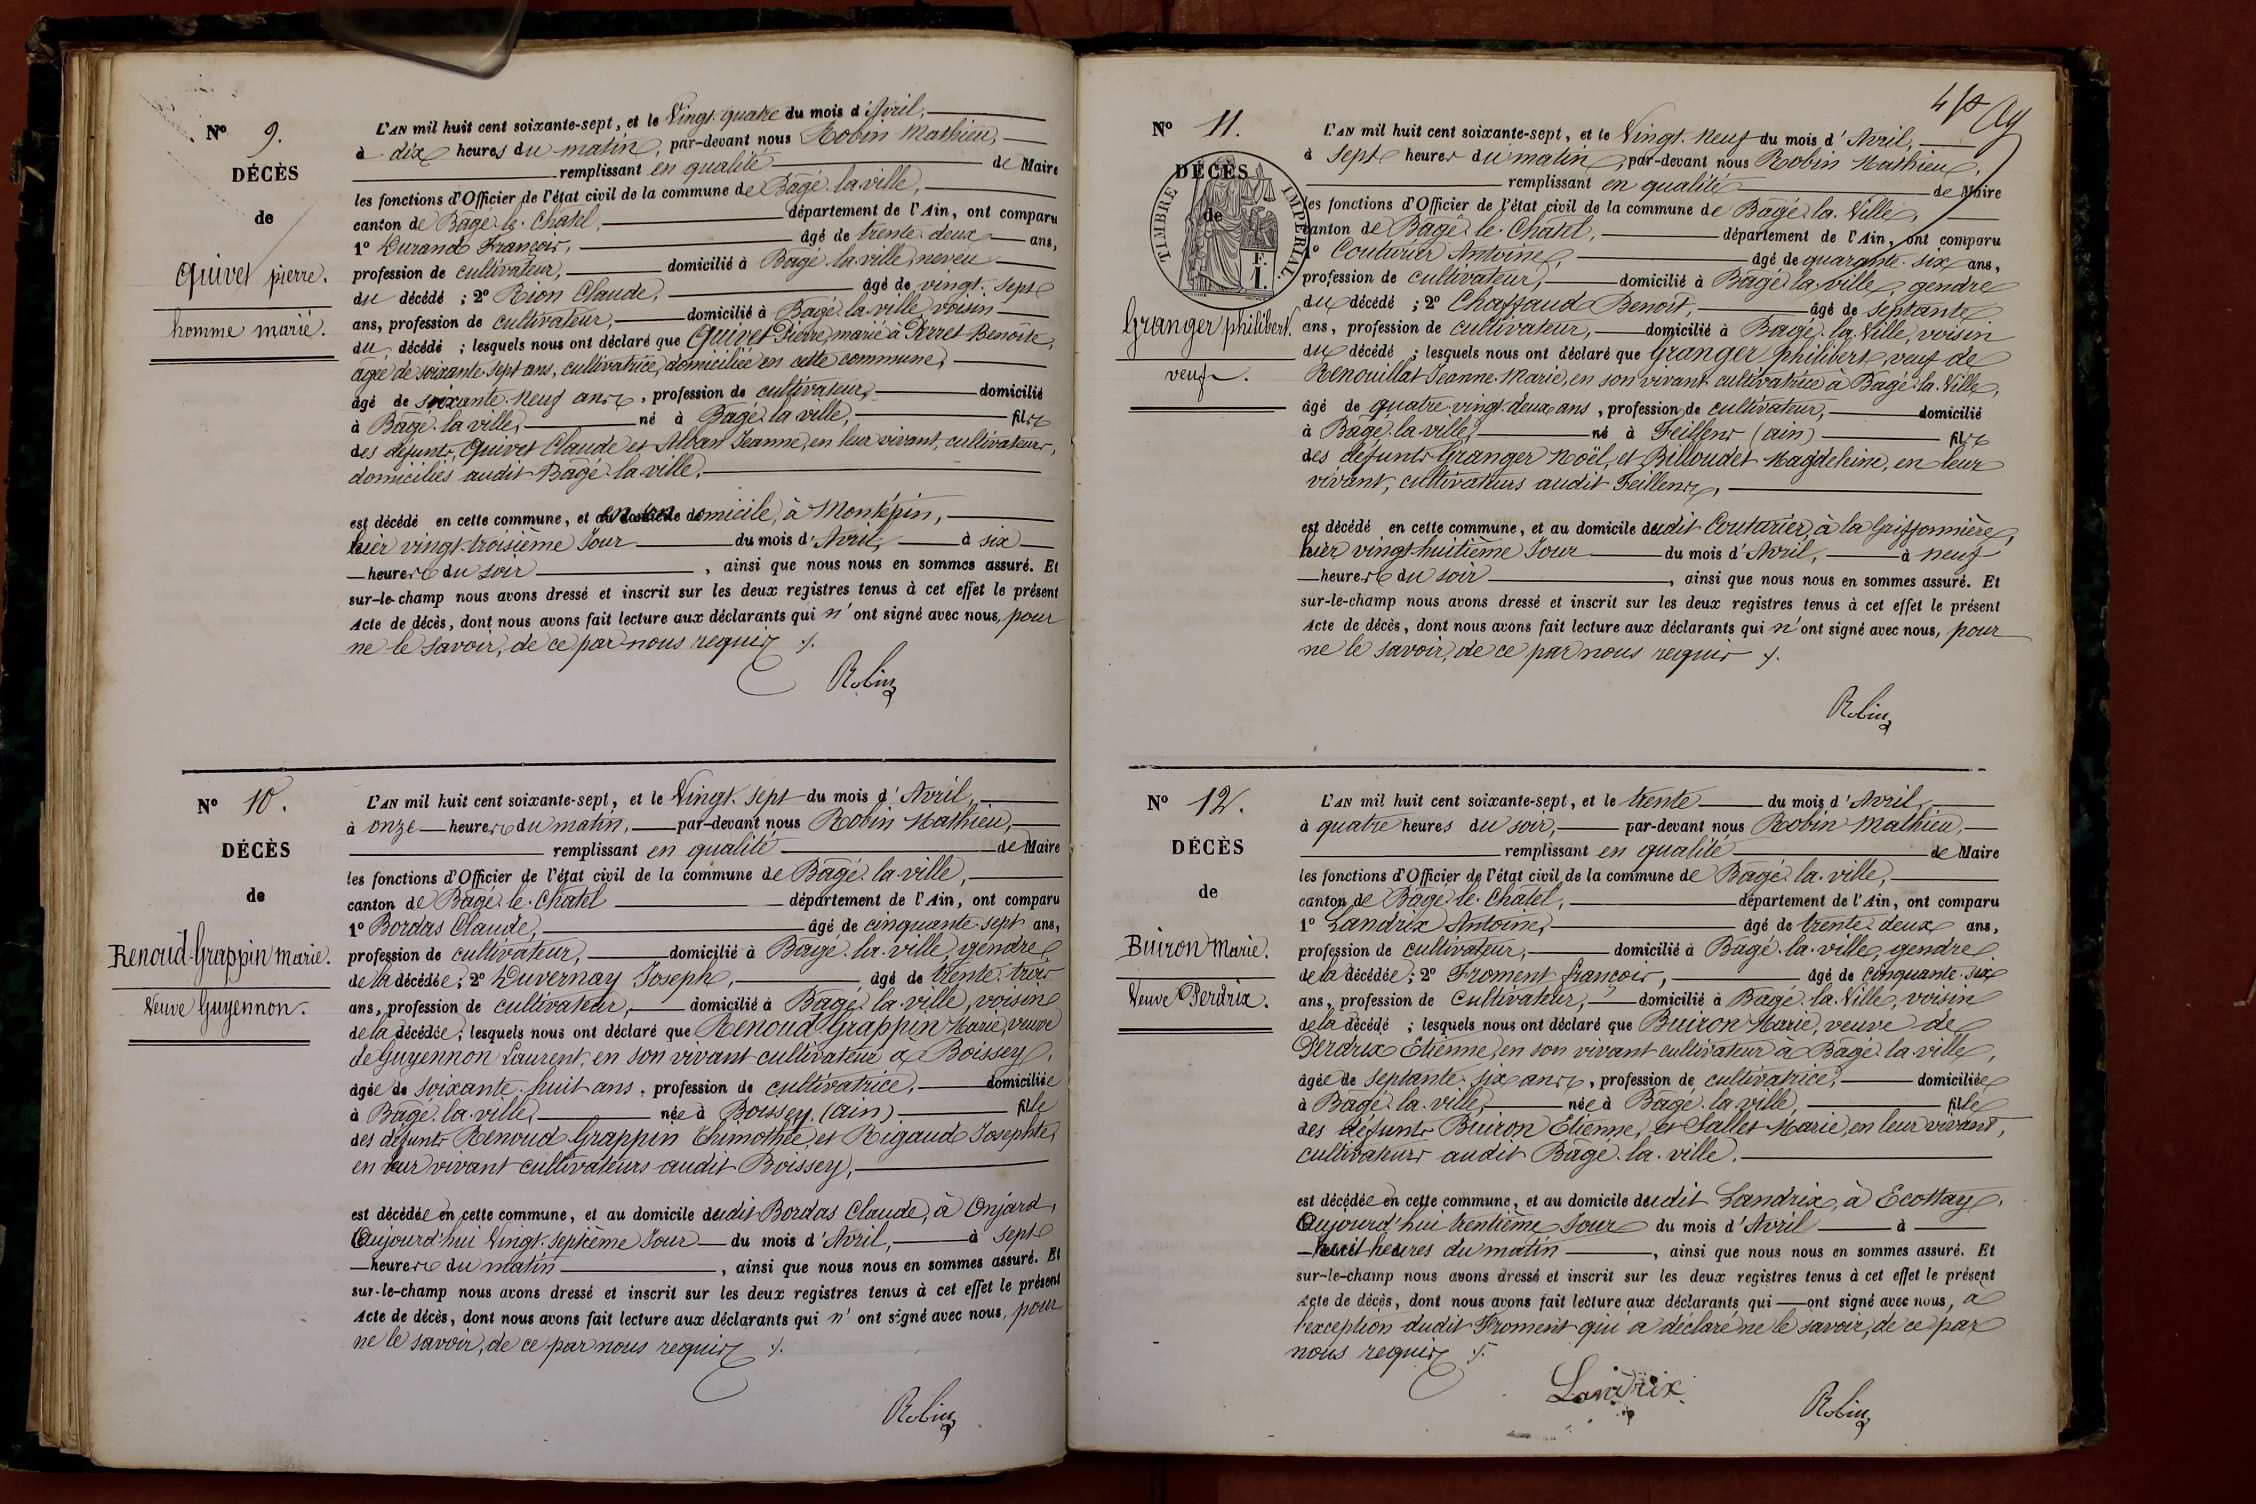 N° 9.
DÉCÈS
de
Quivet pierre.
homme marié.
L'AN mil huit cent soixante-sept, et le Vingt quatre du mois d'Avril,
à dix heures du matin, par-devant nous Robin Mathieu,
remplissant en qualité de Maire
les fonctions d'Officier de l'état civil de la commune de Bâgé la ville,
canton de Bâgé le Chatel, département de l'Ain, ont comparu
1° Durand François, âgé de trente deux ans,
profession de cultivateur, domicilié à Bâgé la ville, neveu
du décédé ; 2° Rion Claude, âgé de vingt sept
ans, profession de cultivateur, domicilié à Bâgé la ville voisin
du décédé ; lesquels nous ont déclaré que Quivet Pierre, marié à Perret Benoîte,
âgée de soixante sept ans, cultivatrice, domiciliée en cette commune,
âgé de soixante neuf ans, profession de cultivateur, domicilié
à Bâgé la ville, né à Bâgé la ville, fils
des défunts, Quivet Claude et Alban Jeanne, en leur vivant, cultivateurs,
domiciliés audit Bâgé la ville,
est décédé en cette commune, et en son domicile, à Montépin,
hier vingt troisième Jour du mois d'Avril, à six
heures du soir, ainsi que nous nous en sommes assuré. Et
sur-le-champ nous avons dressé et inscrit sur les deux registres tenus à cet effet le présent
Acte de décès, dont nous avons fait lecture aux déclarants qui n'ont signé avec nous, pour
ne le savoir, de ce par nous requis ./.
Robin
N° 10.
DÉCÈS
de
Renoud-Grappin Marie.
Veuve Guyennon.
L'AN mil huit cent soixante-sept, et le Vingt sept du mois d'Avril,
à onze heures du matin, par-devant nous Robin Mathieu,
remplissant en qualité de Maire
les fonctions d'Officier de l'état civil de la commune de Bâgé la ville,
canton de Bâgé le Chatel département de l'Ain, ont comparu
1° Bordas Claude, âgé de cinquante sept ans,
profession de cultivateur, domicilié à Bâgé la ville, gendre
de la décédée ; 2° Duvernay Joseph, âgé de trente trois
ans, profession de cultivateur, domicilié à Bâgé la ville, voisin
de la décédée ; lesquels nous ont déclaré que Renoud Grappin Marie, veuve
de Guyennon Laurent, en son vivant cultivateur à Boissey,
âgée de soixante huit ans, profession de cultivatrice, domiciliée
à Bâgé la ville, née à Boissey, (ain) fille
des défunts Renoud Grappin Thimothée, et Rigaud Josephte,
en leur vivant cultivateurs audit Boissey,
est décédée en cette commune, et au domicile dudit Bordas Claude, à Onjard,
Aujourd'hui Vingt septième Jour du mois d'Avril, à sept
heures du matin, ainsi que nous nous en sommes assuré. Et
sur-le-champ nous avons dressé et inscrit sur les deux registres tenus à cet effet le présent
Acte de décès, dont nous avons fait lecture aux déclarants qui n'ont signé avec nous, pour
ne le savoir, de ce par nous requis ./.
Robin
N° 11.
DÉCÈS
de
TIMBRE IMPERIAL
F.
1.
Granger philibert.
veuf.
L'AN mil huit cent soixante-sept, et le Vingt neuf du mois d'Avril,
à sept heures du matin, par-devant nous Robin Mathieu,
remplissant en qualité de Maire
les fonctions d'Officier de l'état civil de la commune de Bâgé la Ville,
canton de Bâgé le Chatel, département de l'Ain, ont comparu
1° Couturier Antoine, âgé de quarante six ans,
profession de cultivateur, domicilié à Bâgé la ville, gendre
du décédé ; 2° Chaffaud Benoit, âgé de septante
ans, profession de cultivateur, domicilié à Bâgé la Ville, voisin
du décédé ; lesquels nous ont déclaré que Granger philibert, veuf de
Renouillat Jeanne Marie, en son vivant cultivatrice à Bâgé la Ville,
âgé de quatre vingt deux ans, profession de cultivateur, domicilié
à Bâgé la ville, né à Feillens (ain) fils
des défunts Granger Noël, et Billoudet Magdeleine, en leur
vivant, cultivateurs audit Feillens,
est décédé en cette commune, et au domicile dudit Couturier, à la Griffonnière,
hier vingt huitième Jour du mois d'Avril, à neuf
heures du soir, ainsi que nous nous en sommes assuré. Et
sur-le-champ nous avons dressé et inscrit sur les deux registres tenus à cet effet le présent
Acte de décès, dont nous avons fait lecture aux déclarants qui n'ont signé avec nous, pour
ne le savoir, de ce par nous requis ./.
Robin
N° 12.
DÉCÈS
de
Buiron Marie.
Veuve Perdrix.
L'AN mil huit cent soixante-sept, et le trente du mois d'Avril,
à quatre heures du soir, par-devant nous Robin Mathieu,
remplissant en qualité de Maire
les fonctions d'Officier de l'état civil de la commune de Bâgé la ville,
canton de Bâgé le Chatel, département de l'Ain, ont comparu
1° Landrix Antoine, âgé de trente deux ans,
profession de cultivateur, domicilié à Bâgé la ville, gendre
de la décédée ; 2° Froment françois, âgé de cinquante six
ans, profession de cultivateur, domicilié à Bâgé la Ville, voisin
de la décédé ; lesquels nous ont déclaré que Buiron Marie, veuve de
Perdrix Etienne, en son vivant cultivateur à Bâgé la ville,
âgée de septante six ans, profession de cultivatrice, domiciliée
à Bâgé la ville, née à Bâgé la ville, fille
des défunts Buiron Etienne, et Sallet Marie, en leur vivant,
cultivateurs audit Bâgé la ville.
est décédée en cette commune, et au domicile dudit Landrix, à Ecottay,
Aujourd'hui trentième Jour du mois d'Avril à
huit heures du matin, ainsi que nous nous en sommes assuré. Et
sur-le-champ nous avons dressé et inscrit sur les deux registres tenus à cet effet le présent
Acte de décès, dont nous avons fait lecture aux déclarants qui ont signé avec nous, à
l'exception dudit Froment qui a déclaré ne le savoir, de ce par
nous requis ./.
Landrix
Robin